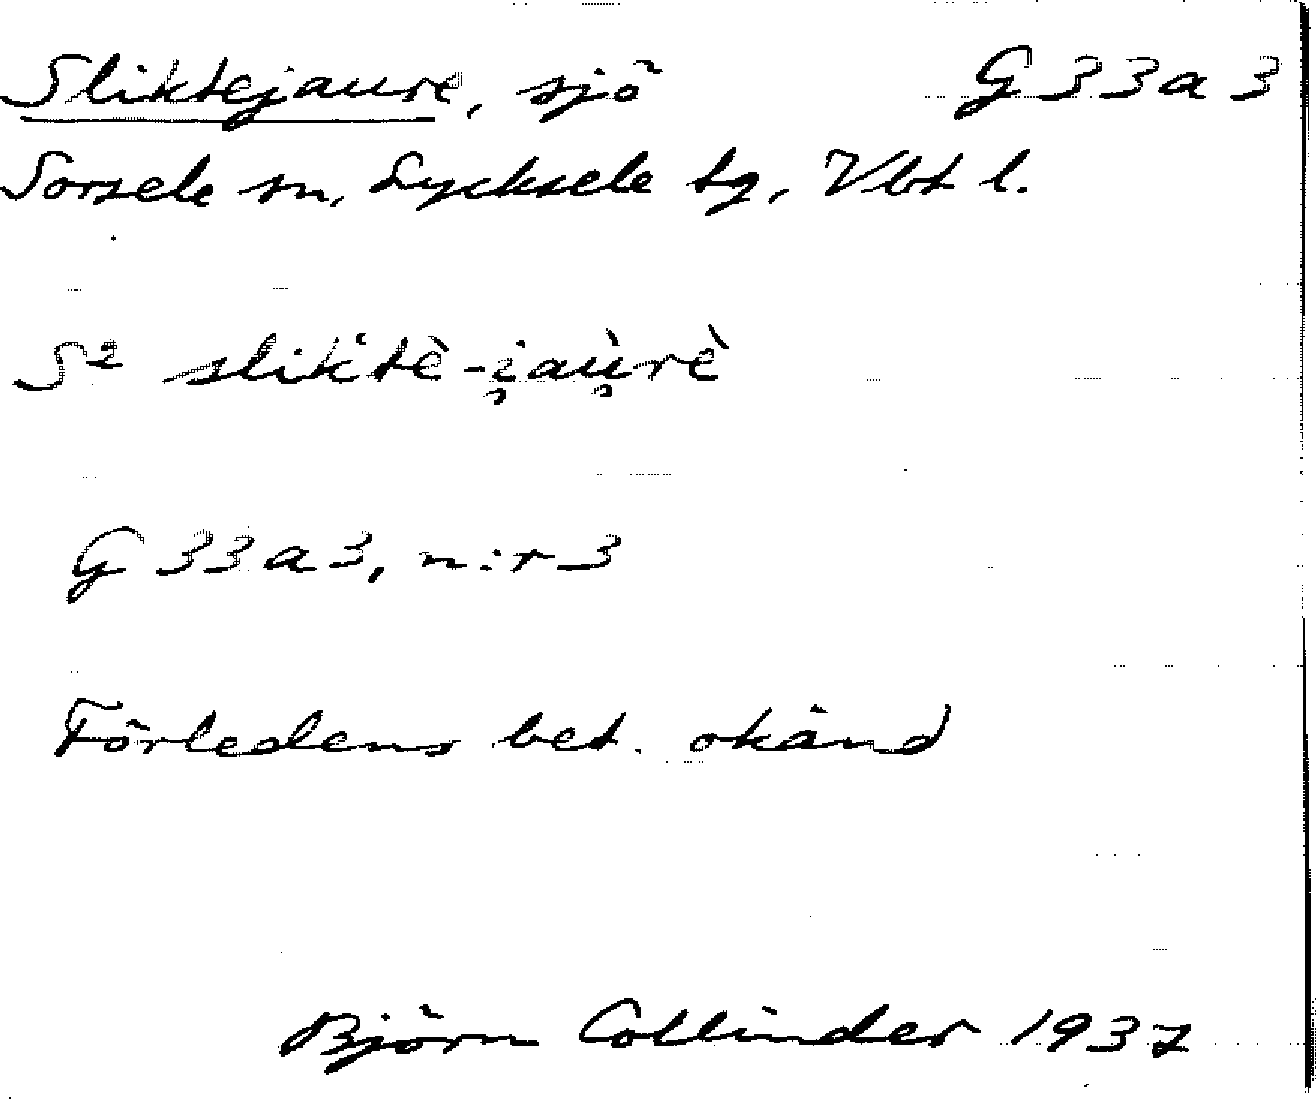 Sliktejaure, sjö G 33 a 3
Sorsele sn, Lycksele tg, Vbt l.
S² slik̀tè-i̯aù̯rè
G 33 a 3, n:r 3
Förledens bet. okänd
Björn Collinder 1937